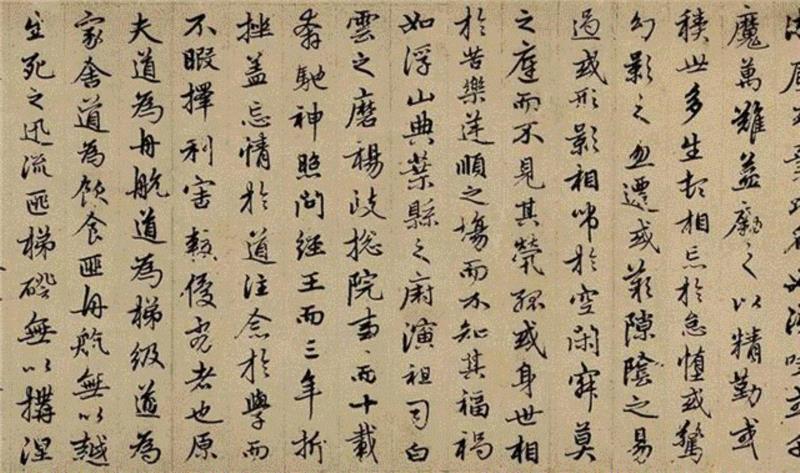 魔萬難益勵之以精勤或
積世多生頓相忘於怠惰或驚
幻影之忽遷或嘆隙陰之易
過或形影相吊於空閑寂莫
之庭而不見其榮孤或身世相
於苦樂逆順之場而不知其福禍
如浮山典葉縣之廚演祖司白
雲之磨楊岐總院事而十載
奔馳神照問經王而三年折
挫蓋忘情於道注念於學而
不暇擇利害較優劣者也原
夫道為舟航道為梯級道為
家舍道為飲食匪舟航無以越
生死之迅流匪梯磴無以搆涅